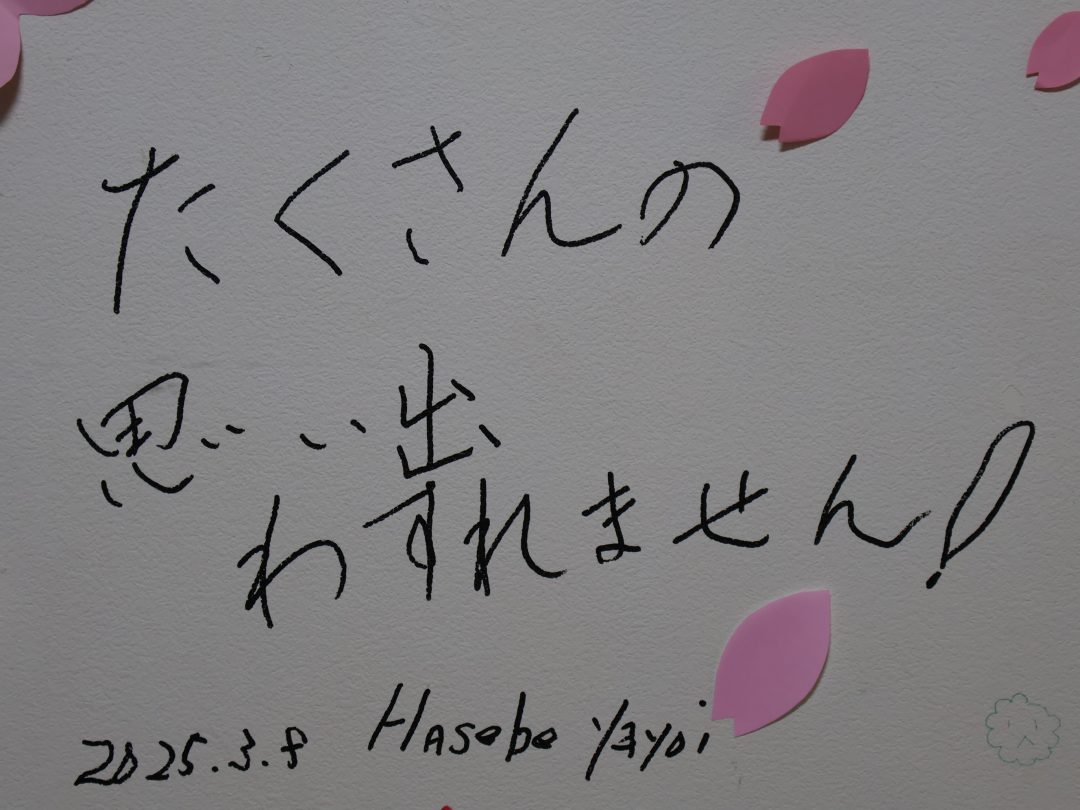 たくさんの
思い出
わすれません!
2025.3.8 Hasebe Yayoi